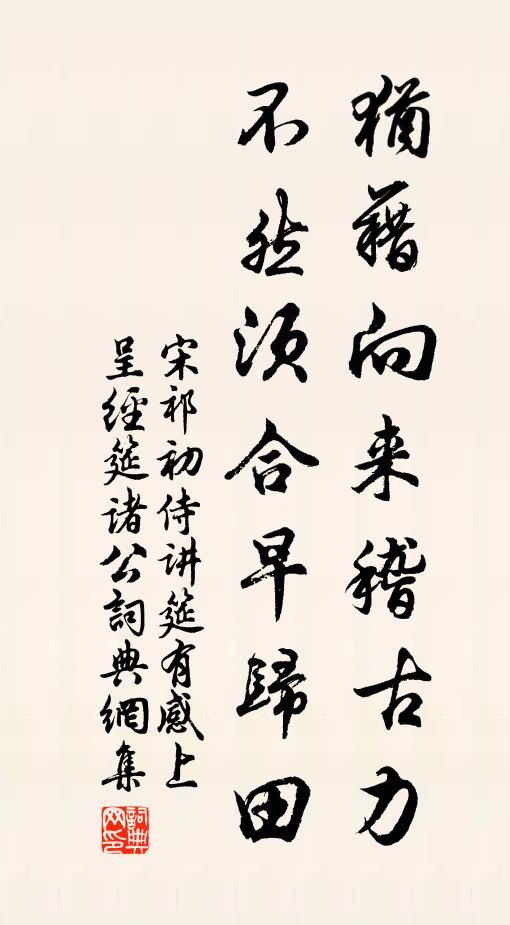 猶藉向来稽古力
不然须合早歸田
宋祁初侍讲筵有感上
呈經筵诸公詞典網集
詞典
网印